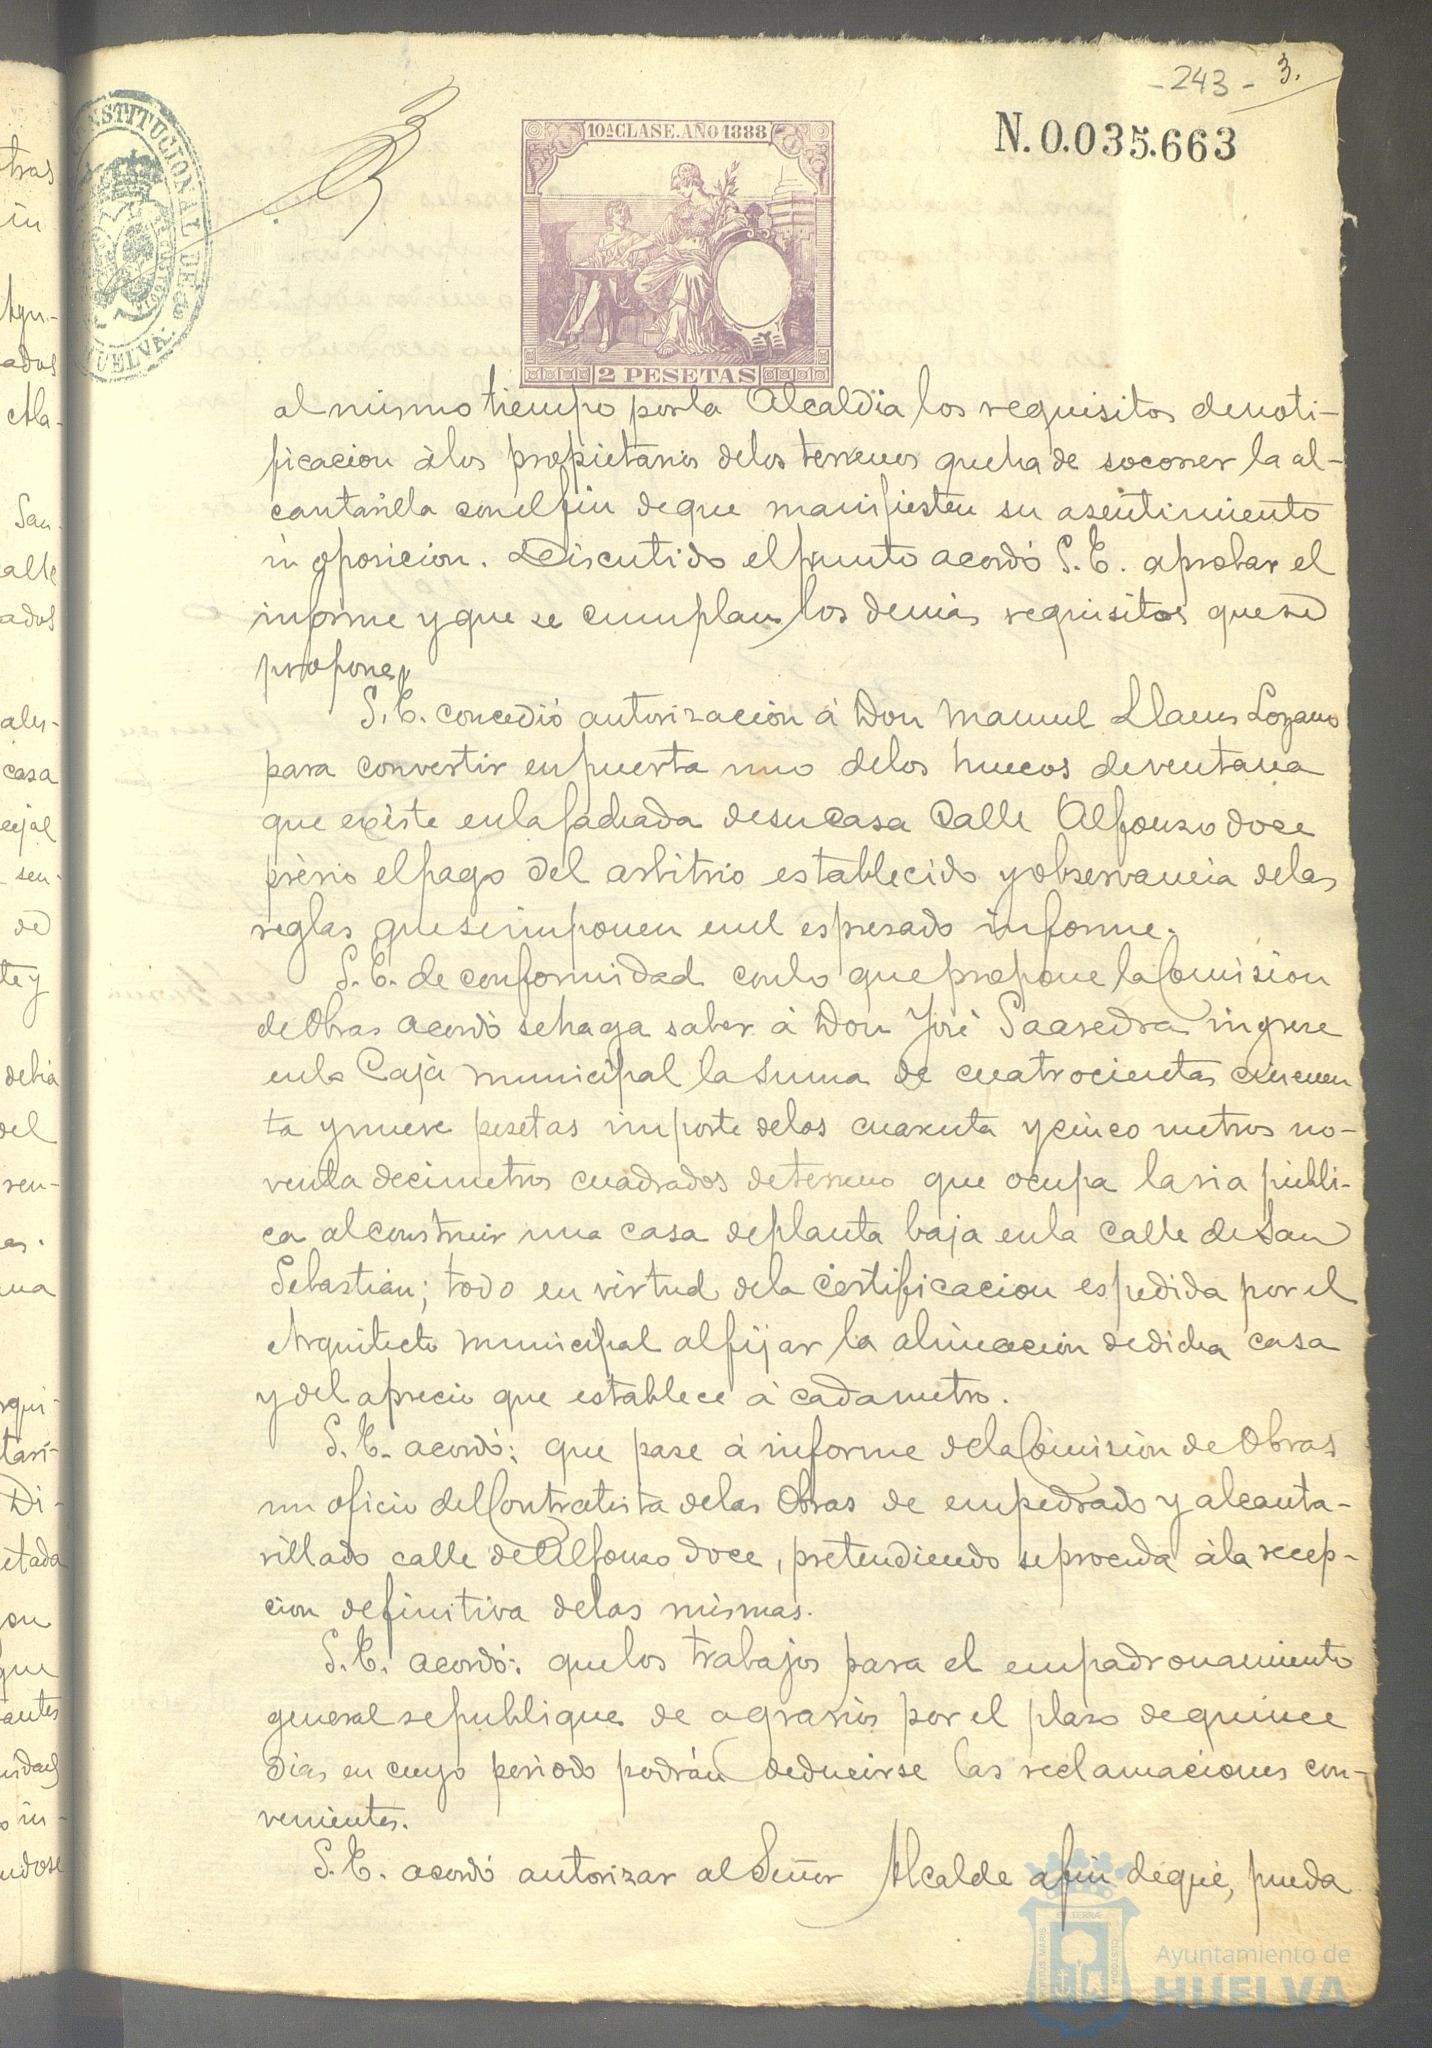 -243- 3.
N.0.035.663
CONSTITUCIONAL DE
HUELVA.
10ª CLASE. AÑO 1888
2 PESETAS
al mismo tiempo por la Alcaldia los requisitos de noti-
ficacion á los propietarios de los terrenos que ha de socorrer la al-
cantarilla con el fin de que manifiesten su asentimiento
ú oposicion. Discutido el punto acordó S.E. aprobar el
informe y que se cumplan los demás requisitos que se
propone.
S.E. concedió autorizacion á Don Manuel Llanes Lozano
para convertir en puerta uno de los huecos de ventana
que existe en la fachada de su casa Calle Alfonso doce
prévio el pago del arbitrio establecido y observancia de las
reglas que se imponen en el espresado informe.
S.E. de conformidad con lo que propone la Comision
de Obras acordó se haga saber á Don José Saavedra ingrese
en la Caja municipal la suma de cuatrocientas cincuen
ta y nueve pesetas importe de los cuarenta y cinco metros no-
venta decimetros cuadrados de terreno que ocupa la via públi-
ca al construir una casa de planta baja en la calle de San
Sebastián; todo en virtud de la Certificacion espedida por el
Arquitecto municipal al fijar la alineacion de dicha casa
y del aprecio que establece á cada metro.
S.E. acordó: que pase á informe de la Comision de Obras
un oficio del Contratista de las Obras de empedrado y alcanta-
rillado calle de Alfonso doce, pretendiendo se proceda á la recep-
cion definitiva de las mismas.
S.E. acordó: que los trabajos para el empadronamiento
general se publique de agravios por el plazo de quince
dias en cuyo periodo podrán deducirse las reclamaciones con-
venientes.
S.E. acordó autorizar al Señor Alcalde a fin de que, pueda
Ayuntamiento de
HUELVA